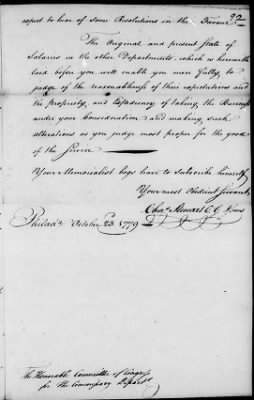 92
expect to hear of some Resolutions in their Favour
The Original and present State of
Salaries in the other Departments, which is herewith
laid before you will enable you more fully, to
judge of the reasonableness of their expectations and
the propriety, and Expediency of taking the Business
under your Consideration and making such
alterations as you judge most proper for the good
of the Service
Your Memorialist begs leave to Subscribe himself
Your most Obedient Servant
Chas. Stewart C. G. Issues
Philada. October 23. 1779
The Honorable Committee of Congress
for the Commissary Departt.